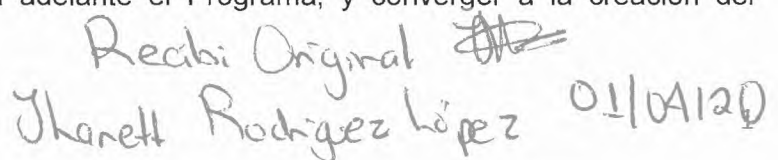 adelante el Programa, y converger a la creación del
Recibi Original
Jhanett Rodriguez López 01/04/20